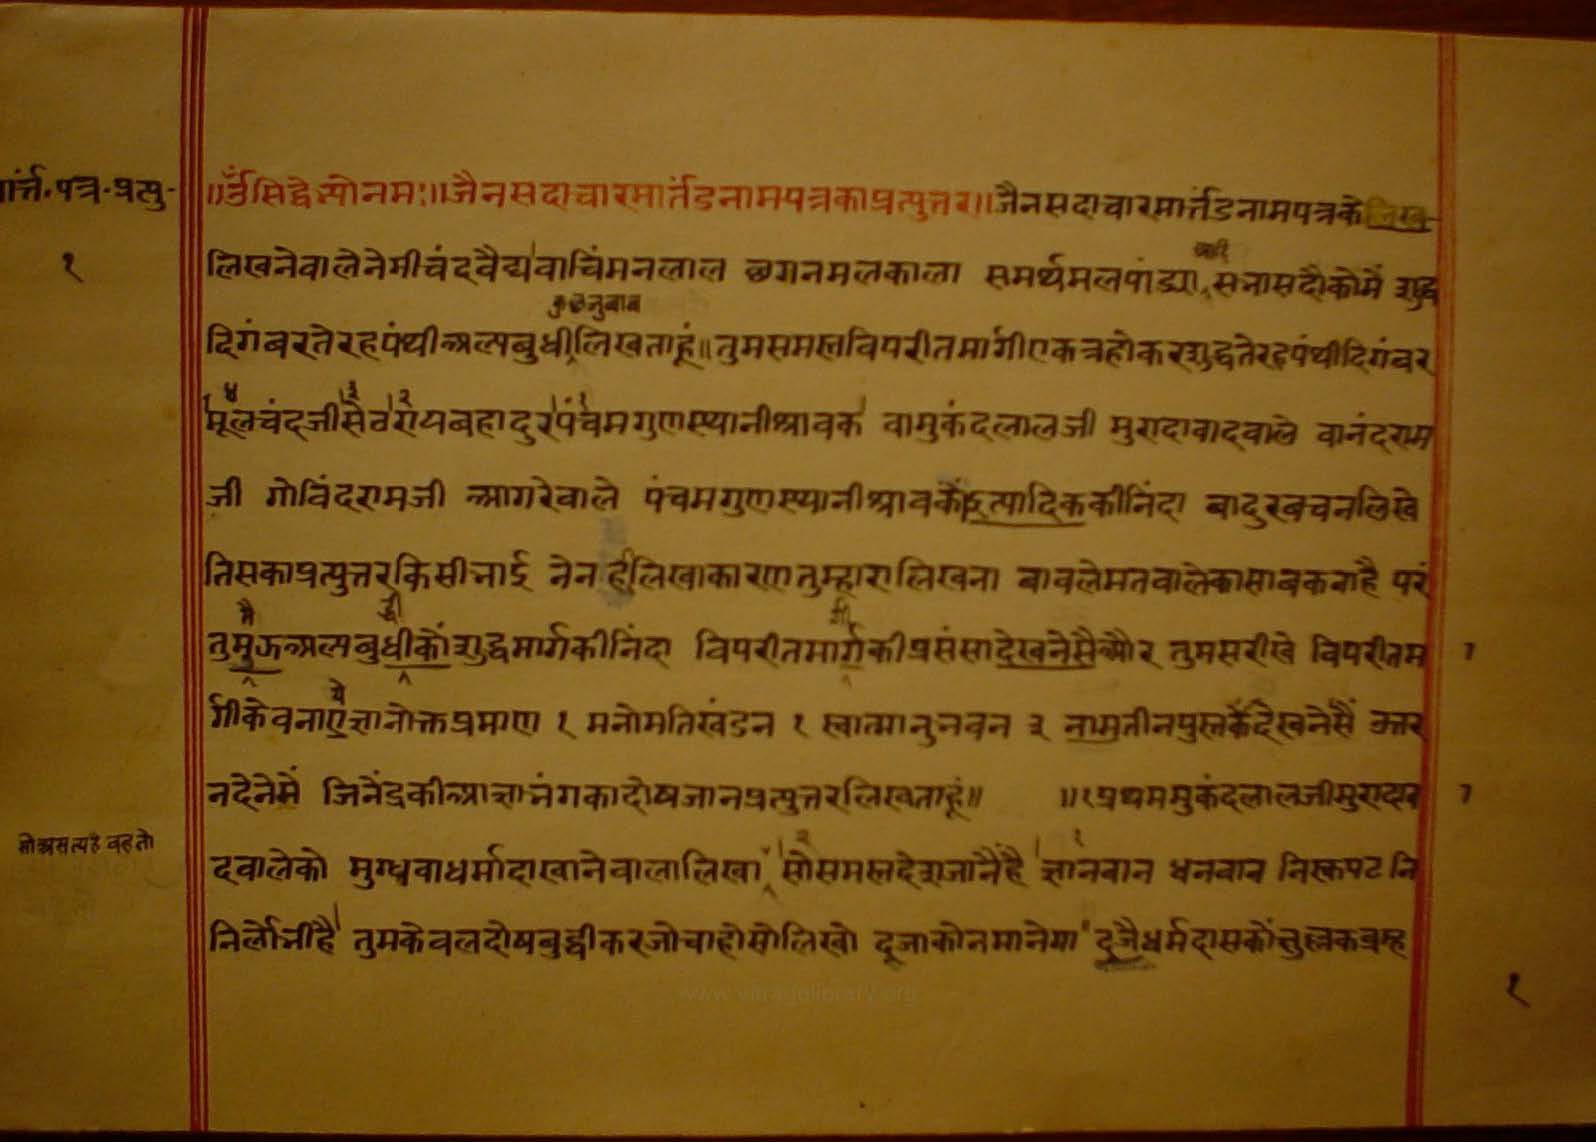 र्मार्त्त. पत्र. प्रत्यु-
१
॥ॐ सिद्धेभ्यो नमः॥ जैनसदाचारमार्तंडनामपत्रकाप्रत्युत्तर॥ जैनसदाचारमार्त्तंडनामपत्रके
लिखनेवाले नेमीचंदवैद्य वा चिंमनलाल छगनमलकाला समर्थमलपांड्या सभासदौंको मैं शुद्ध
कुछ नुवाब
दिगंबरतेरहपंथी अल्पबुधी लिखताहूं॥ तुमसमस्तविपरीतमार्गी एकत्रहोकर शुद्धतेरहपंथीदिगंबर
४ ३ २ १
मूलचंदजी सेठ रायबहादुर पंचमगुणस्थानीश्रावक वा मुकंदलालजी मुरादाबादवाले वा नंदराम
जी गोविंदरामजी आगरेवाले पंचमगुणस्थानीश्रावकों इत्यादिककी निंदा वा दुरबचन लिखे
तिसका प्रत्युत्तर किसी भाई ने नहीं लिखा कारण तुम्हारा लिखना बावलेमतवालेकासा बकबाहै परं
तु मुझ अल्पबुधीकों शुद्धमार्गकी निंदा विपरीतमार्गकी प्रसंसा देखनेसै और तुमसरीखे विपरीतम
र्गीके वनाये ज्ञानोक्तप्रमाण १ मनोमतिखंडन १ स्वात्मानुभवन ३ नाम तीनपुस्तकें देखनेसैं उत्तर
न देनेमें जिनेंद्रकी आज्ञाभंगका दोष जान प्रत्युत्तर लिखताहूं॥ ॥१ प्रथम मुकंदलालजी मुरादाबा
सो असत्य है वह तो
दवालेको मुग्ध वा धर्मादाखानेवाला लिखा सो समस्तदेश जानैंहै ज्ञानवान धनवान निस्कपट नि
निर्लोभीहै तुम केवल दोषबुद्धीकर जो चाहो सो लिखो दूजा कोन मानेगा दूजै धर्मदासकों क्षुल्लकब्रम्ह
१
www.vitragvani.org